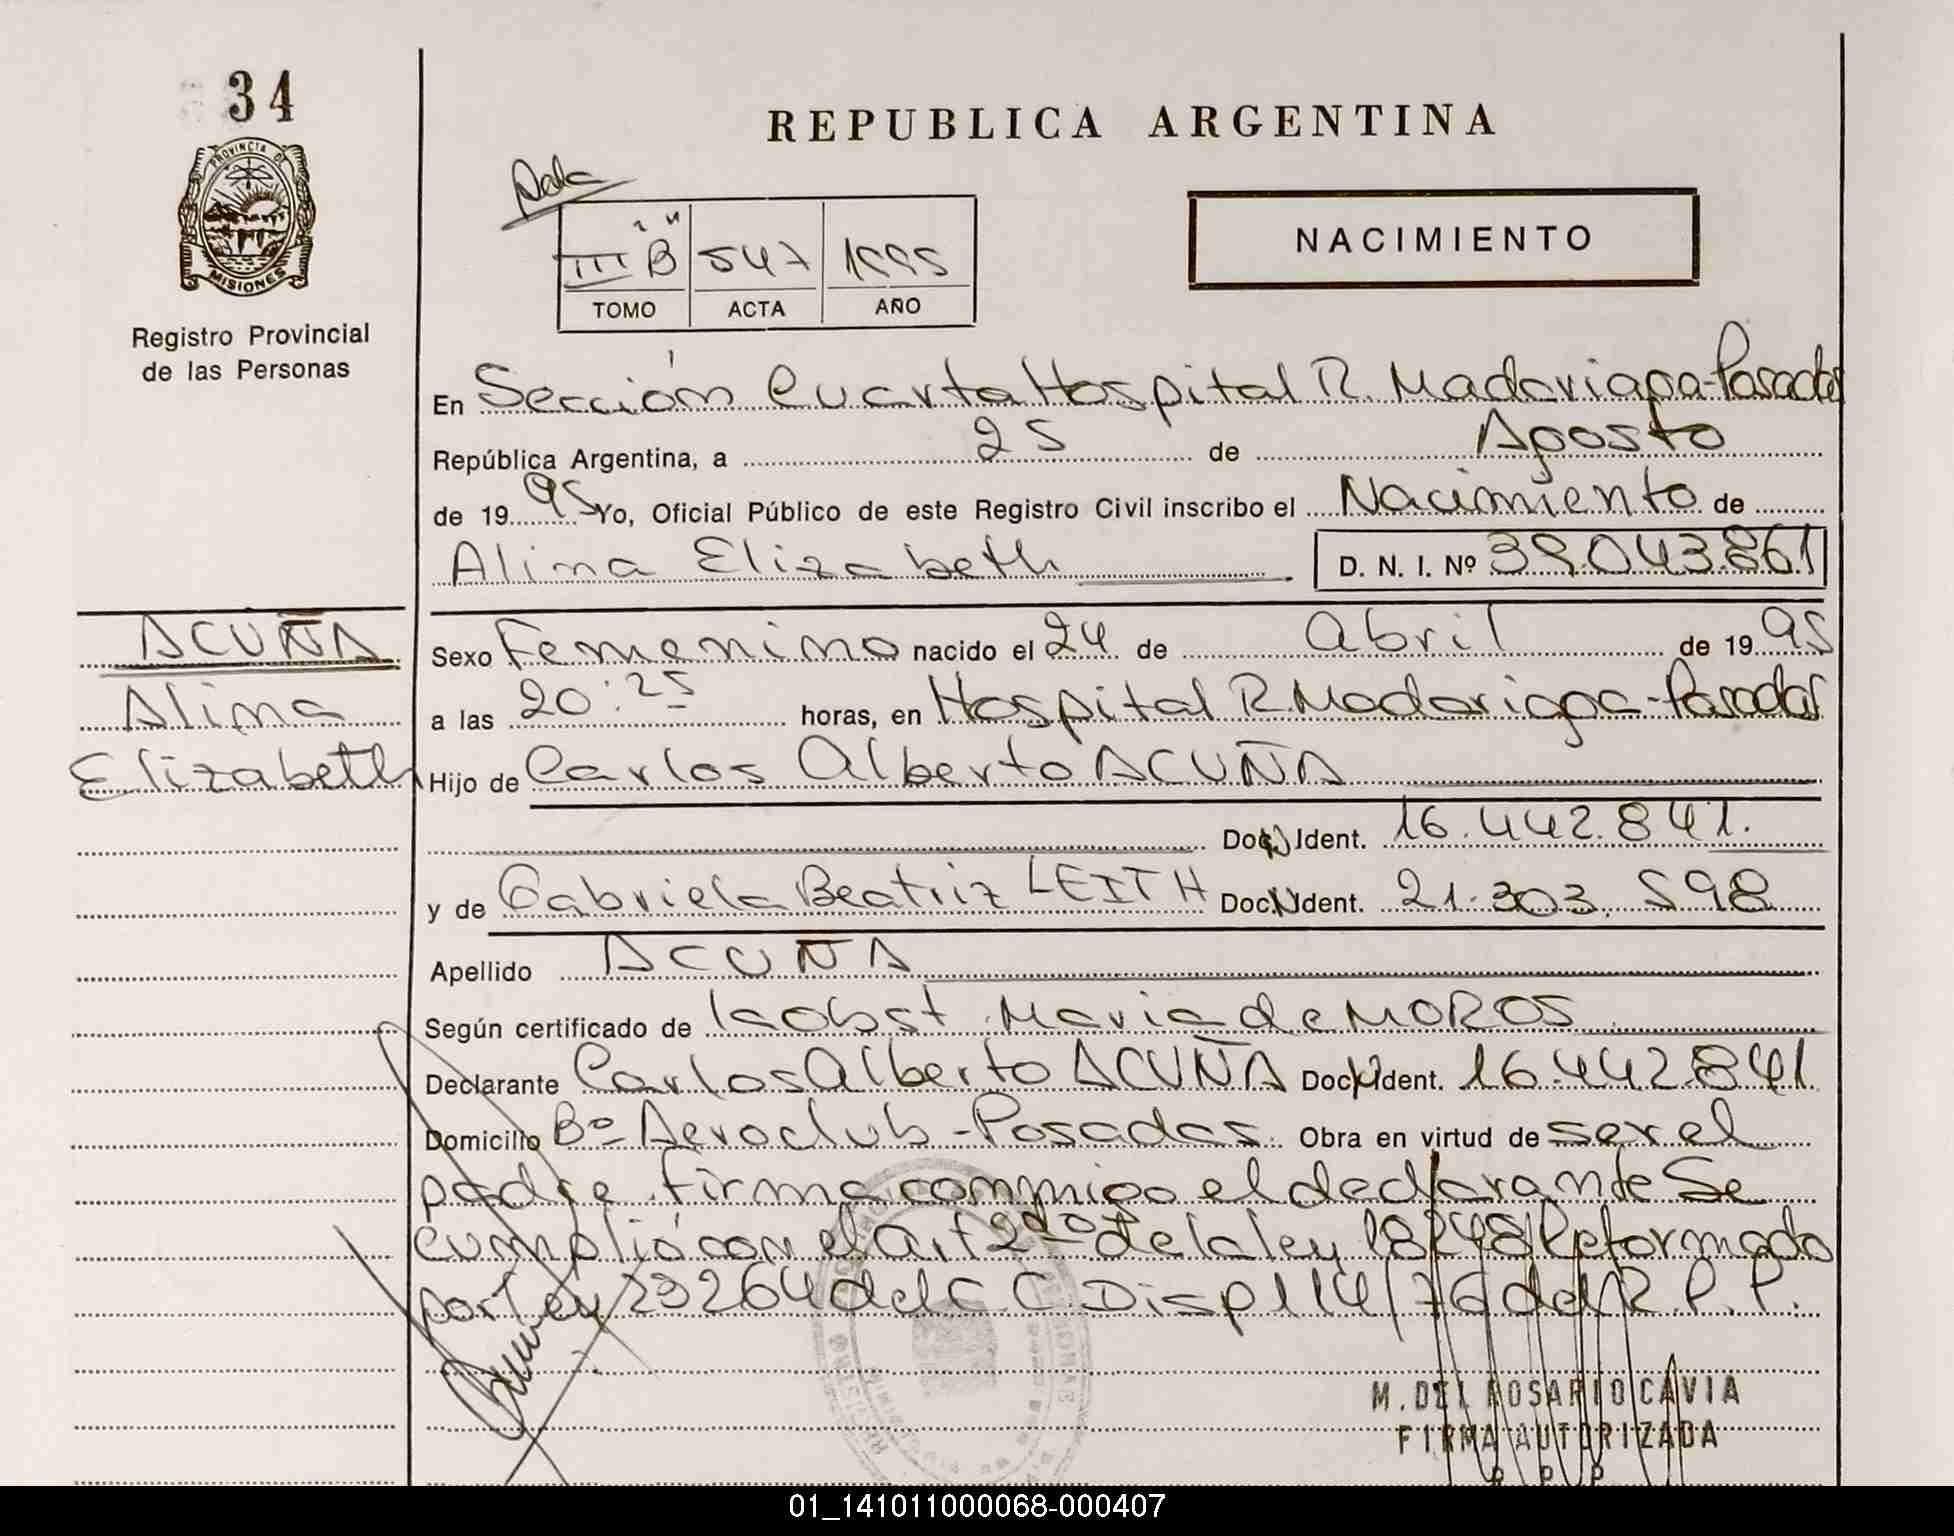 34
PROVINCIA DE
MISIONES
Registro Provincial
de las Personas
REPUBLICA ARGENTINA
III "B" 547 1995
TOMO ACTA AÑO
NACIMIENTO
En Sección Cuarta Hospital R. Madariaga-Posadas
República Argentina, a 25 de Agosto
de 1995 Yo, Oficial Público de este Registro Civil inscribo el Nacimiento de
Alima Elizabeth D. N. I. Nº 39.043.861
ACUÑA
Alima
Elizabeth
Sexo Femenino nacido el 24 de abril de 1995
a las 20:25 horas, en Hospital R Madariaga-Posadas
Hijo de Carlos Alberto ACUÑA
Doc. Ident. 16.442.841.
y de Gabriela Beatriz LEITH Doc. Ident. 21.303.598
Apellido ACUÑA
Según certificado de Iaobst Maria de MOROS
Declarante Carlos Alberto ACUÑA Doc. Ident. 16.442.841
Domicilio Bº Aeroclub - Posadas Obra en virtud de ser el
padre firma conmigo el declarante Se
cumplió con el Art 2do de la ley 18248 Reformado
por ley 23264 del C C. Disp 114/76 del R. P. P.
M. DEL ROSARIO CAVIA
FIRMA AUTORIZADA
R. P. P.
01_141011000068-000407